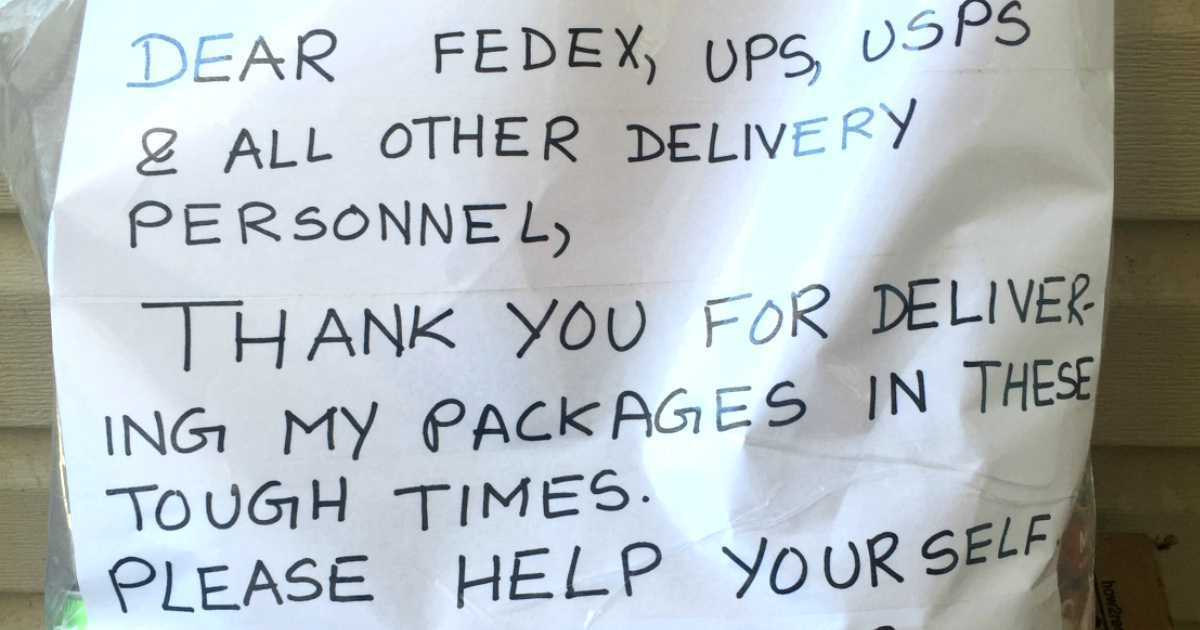 DEAR FEDEX, UPS, USPS
& ALL OTHER DELIVERY
PERSONNEL,
THANK YOU FOR DELIVER-
ING MY PACKAGES IN THESE
TOUGH TIMES.
PLEASE HELP YOURSELF.
how2re